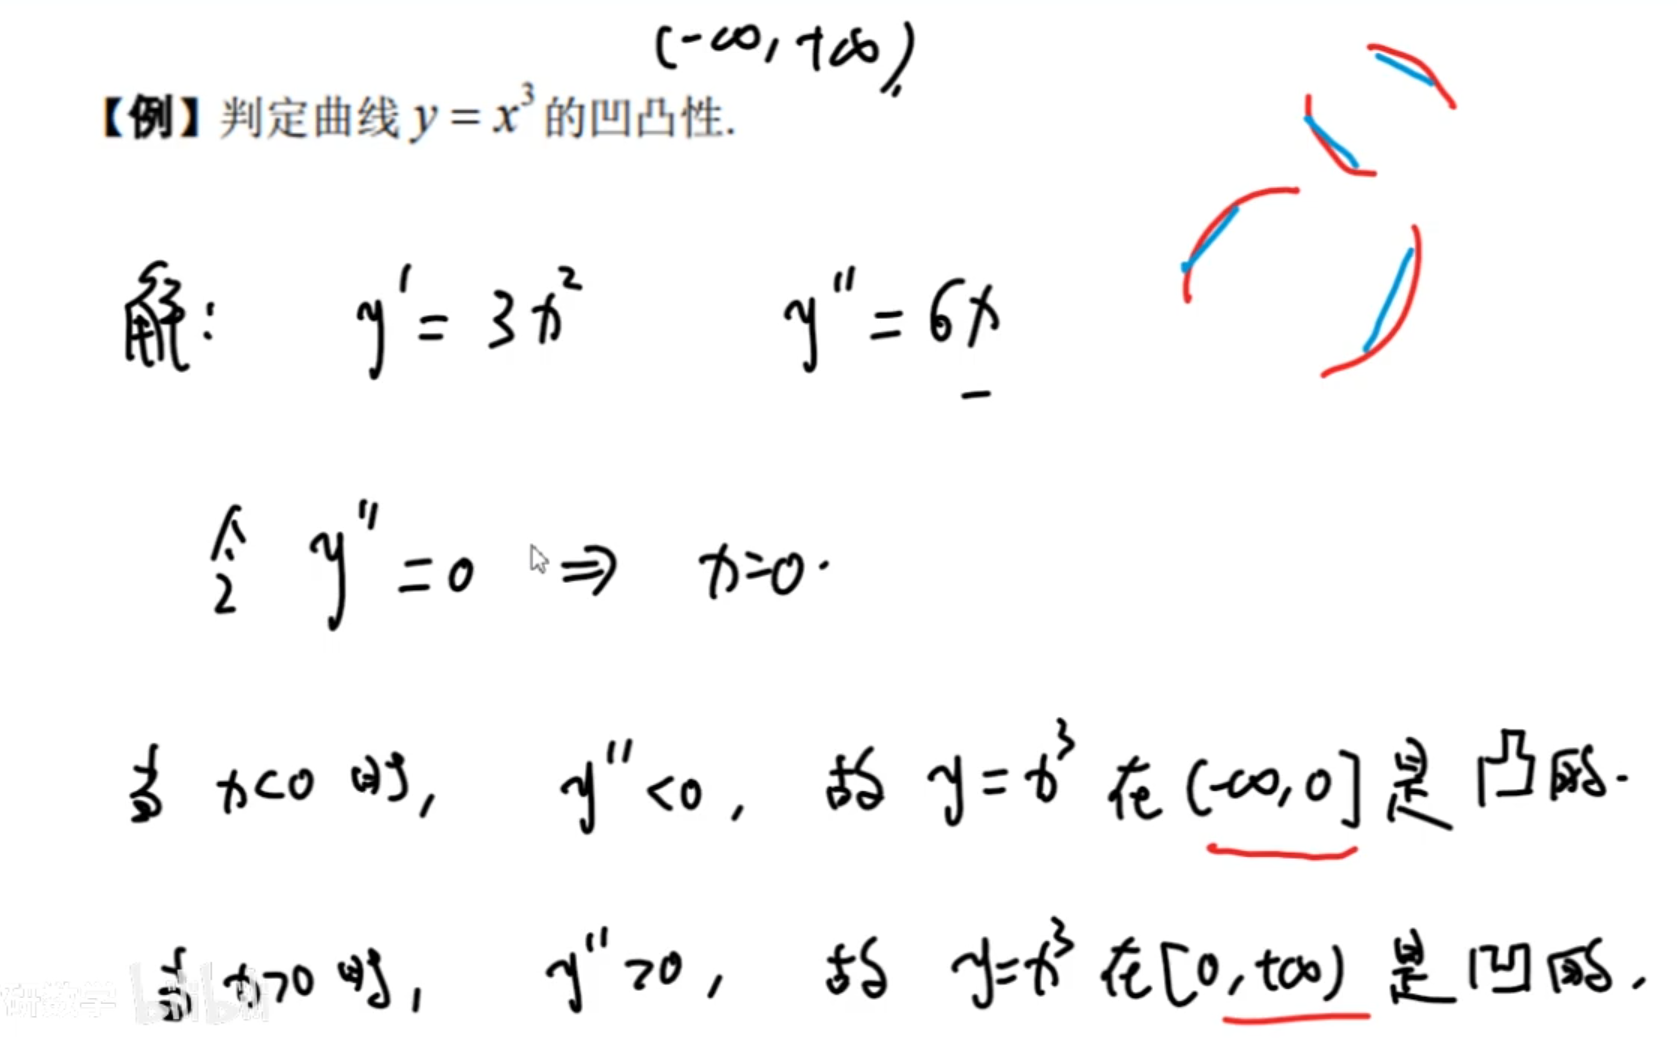 (-∞, +∞)
【例】判定曲线 y = x³ 的凹凸性.
解: y′ = 3x² y″ = 6x
令 y″ = 0 ⇒ x=0.
当 x<0 时, y″<0, 故 y=x³ 在 (-∞, 0] 是 凸 的.
当 x>0 时, y″>0, 故 y=x³ 在 [0, +∞) 是 凹 的.
研数学 bilibili